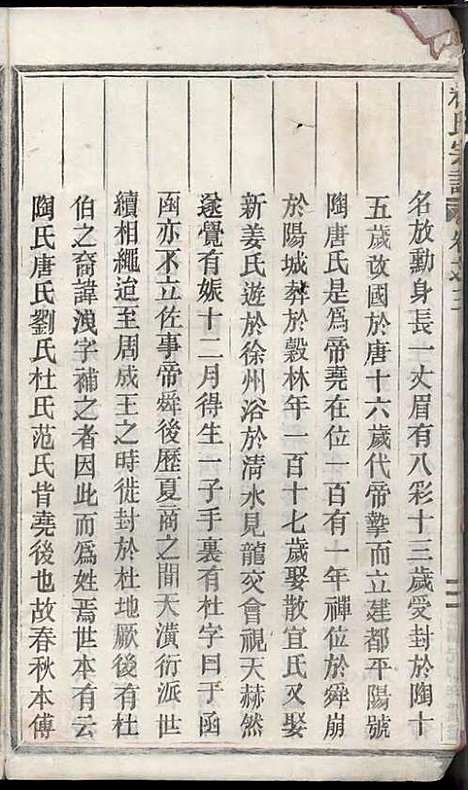 杜氏宗譜 卷之三
名放勳身長一丈眉有八彩十三歲受封於陶十
五歲改國於唐十六歲代帝摯而立建都平陽號
陶唐氏是爲帝堯在位一百有一年禪位於舜崩
於陽城葬於穀林年一百十七歲娶散宜氏又娶
新姜氏遊於徐州浴於清水見龍交會視天赫然
遂覺有娠十二月得生一子手裏有杜字曰于函
函亦不立佐事帝舜後歷夏商之間天潢衍派世
續相繩迨至周成王之時徙封於杜地厥後有杜
伯之裔諱洩字補之者因此而爲姓焉世本有云
陶氏唐氏劉氏杜氏范氏皆堯後也故春秋本傳